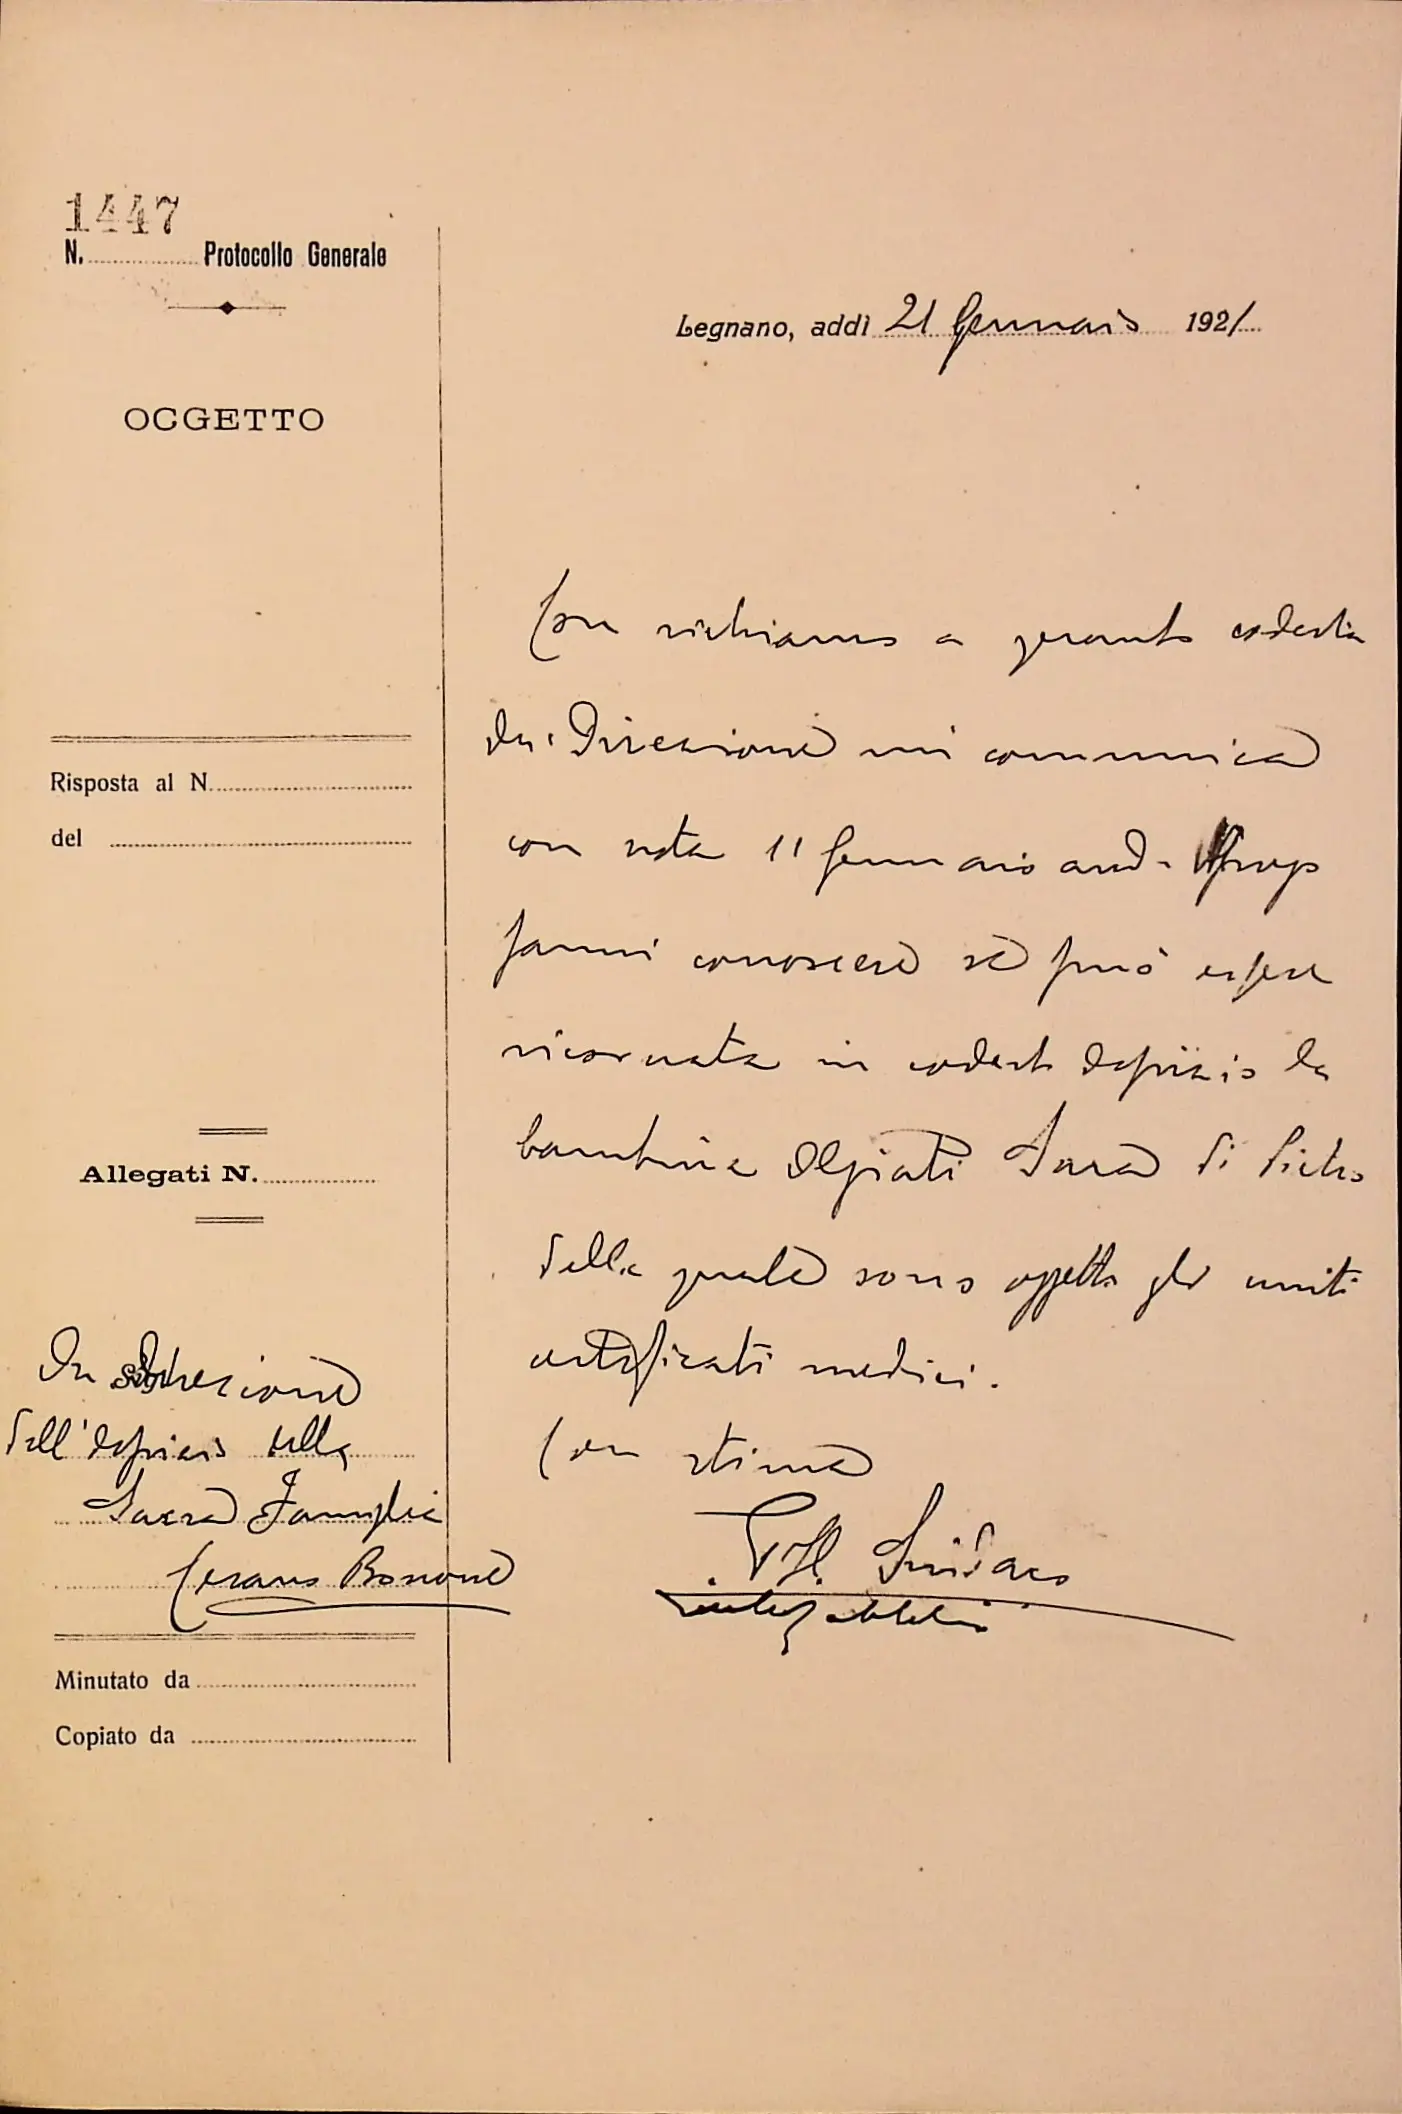 1447
N. Protocollo Generale
Legnano, addì 21 Gennaio 1921
OGGETTO
Con richiamo a quanto codesta
On. Direzione mi comunica
con nota 11 gennaio and.
farmi conoscere se può essere
ricoverata in codesto Ospizio la
bambina Olgiati Sara di Pietro
della quale sono oggetto gli uniti
certificati medici.
Con stima
Il Sindaco
Risposta al N.
del
Allegati N.
On Direzione
dell'Ospizio della
Sacra Famiglia
Cesano Boscone
Minutato da
Copiato da